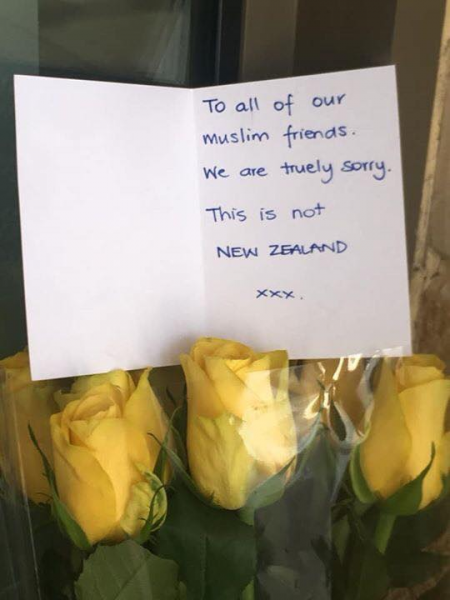 To all of our
muslim friends.
We are truely sorry.
This is not
NEW ZEALAND
xxx.